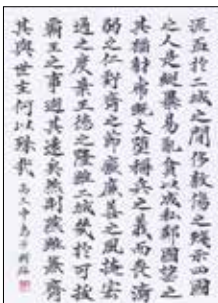 流血於二城之間侈殺傷之殘示四國
之人是縱暴易亂貪以成私鄰國望之
其猶豺虎既大墮稱兵之義而喪濟
弱之仁虧齊之節廢廉善之風掩宏
通之度棄王德之隆雖二城幾於可拔
霸王之事逝其遠矣然則燕雖兼齊
其與世主何以殊哉